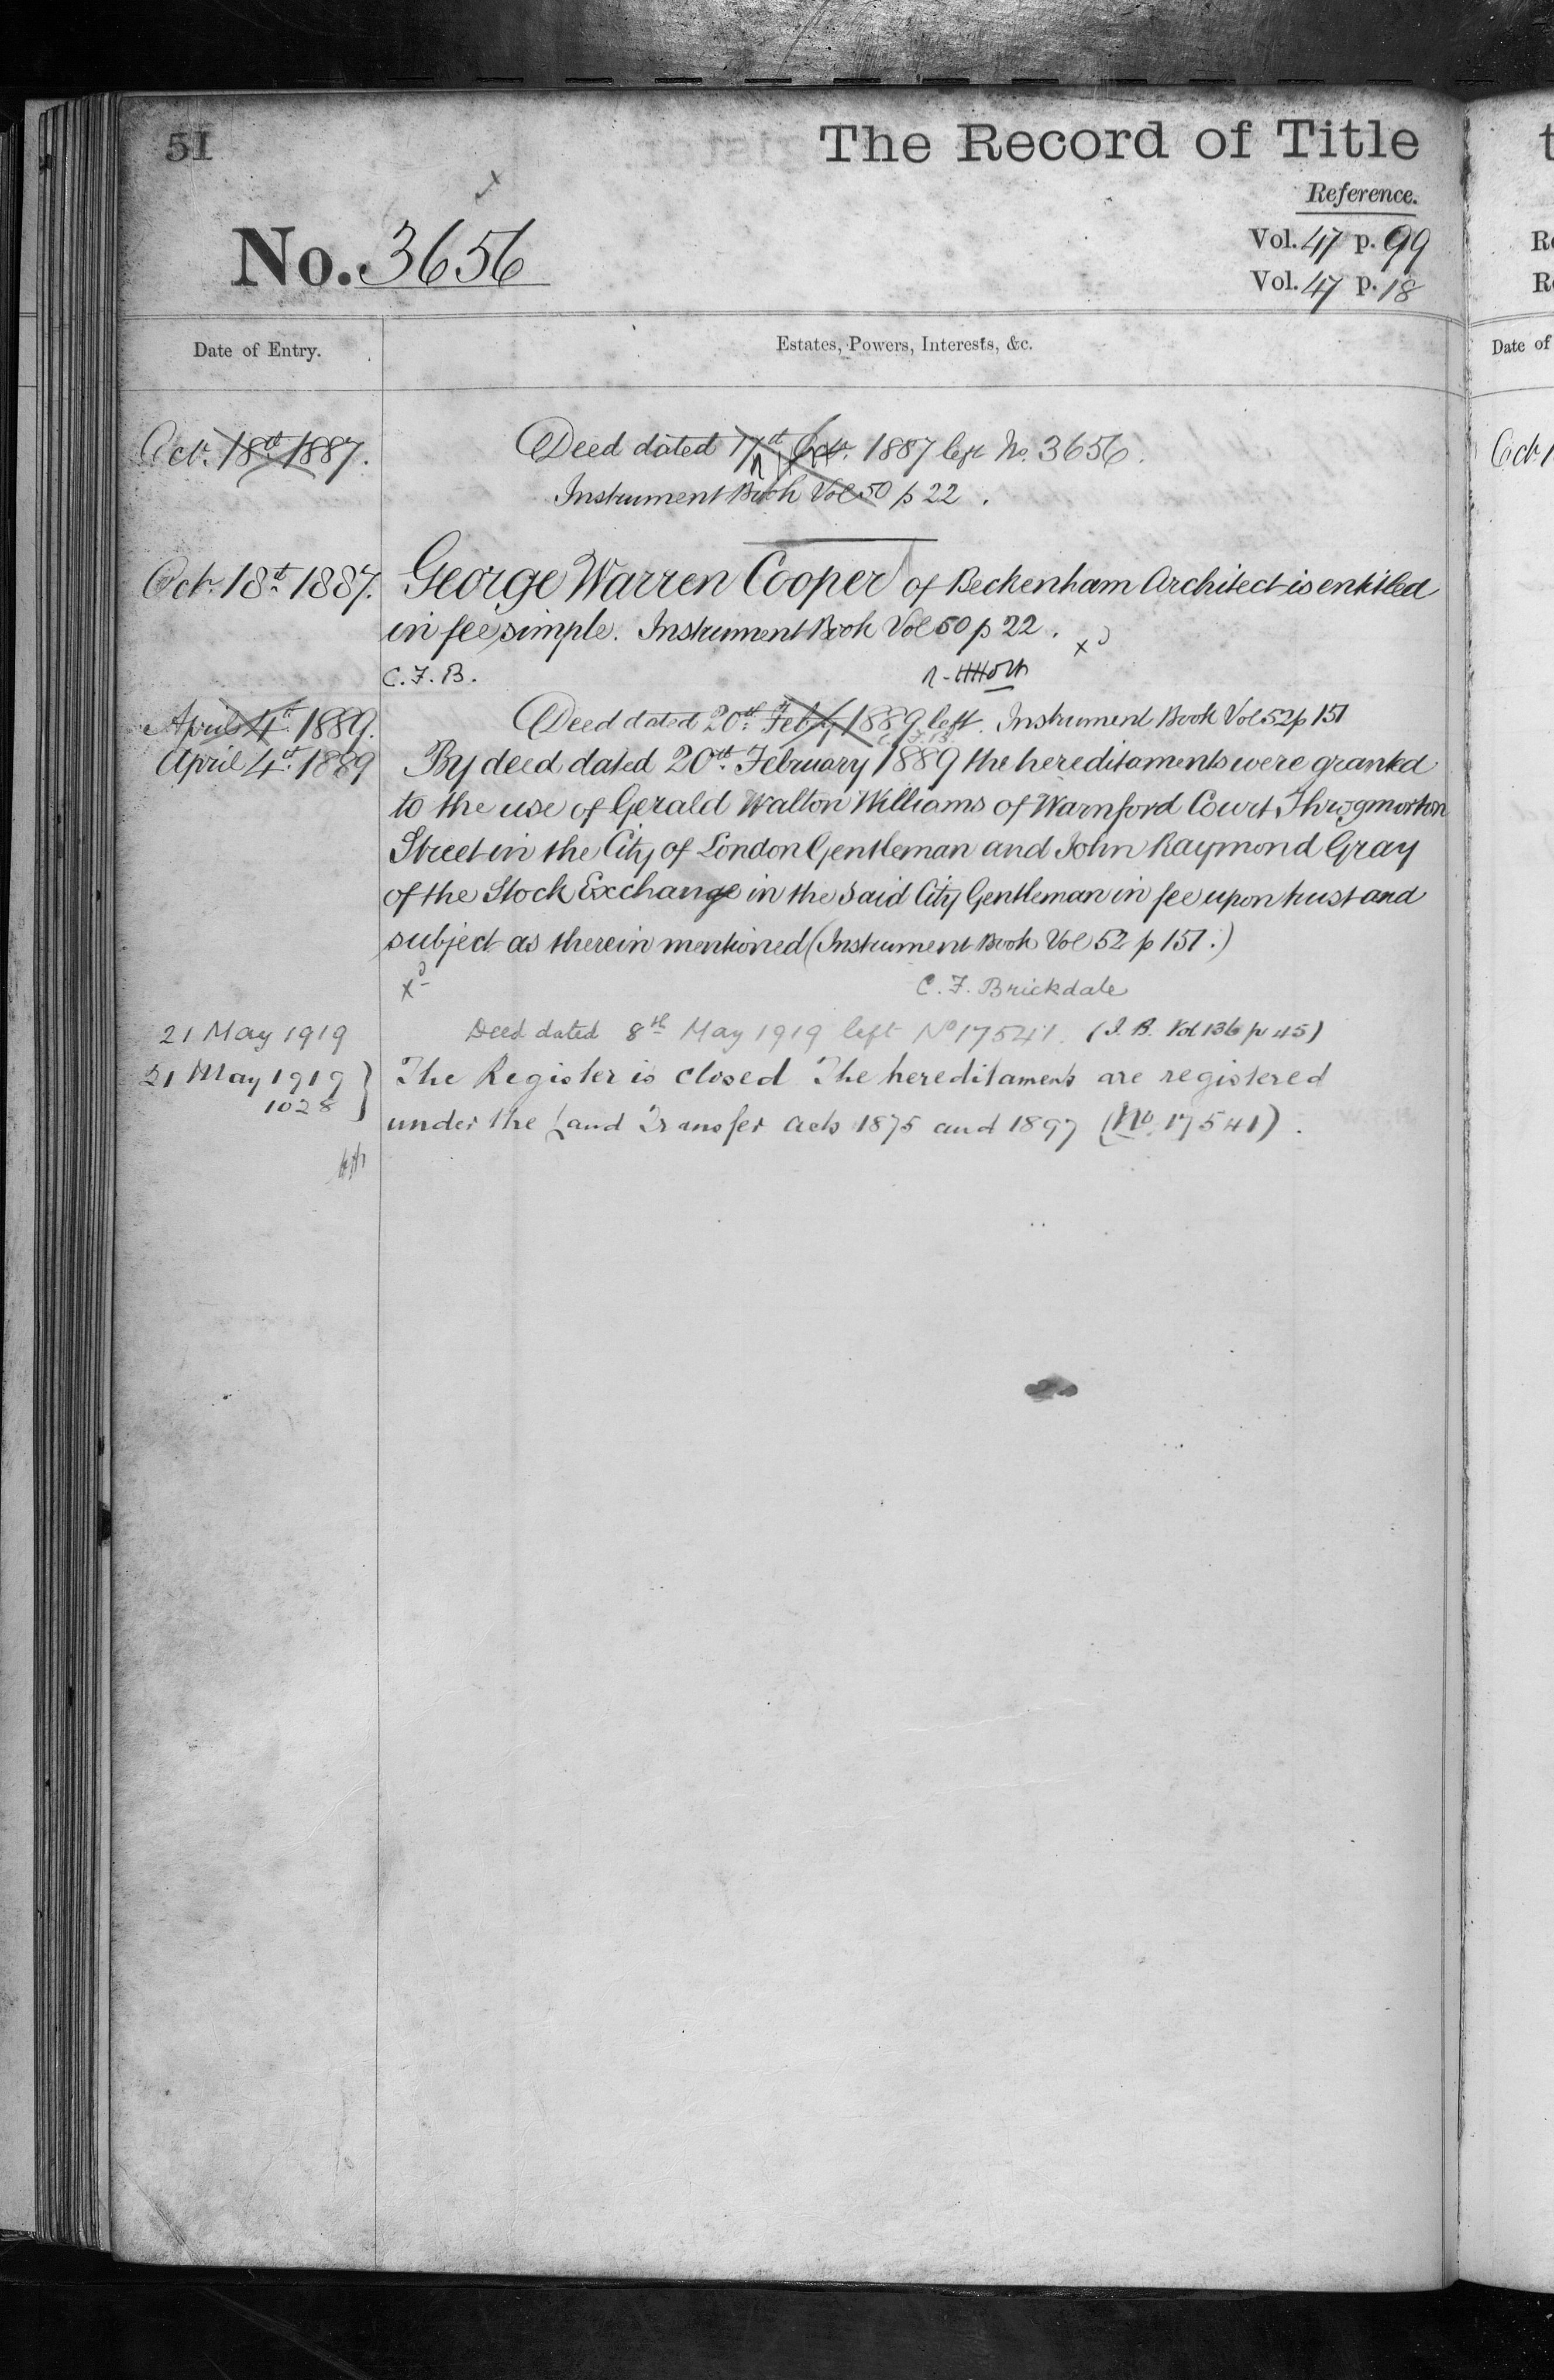 51
The Record of Title
Reference.
No. 3656
Vol. 47 p. 99
Vol. 47 p. 18
Date of Entry.
Estates, Powers, Interests, &c.
Oct. 18th 1887.
Deed dated 17th Oct. 1887 left No. 3656.
Instrument Book Vol 50 p 22.
Oct. 18th 1887.
George Warren Cooper of Beckenham Architect is entitled
in fee simple. Instrument Book Vol 50 p 22.
C. F. B.
April 4th 1889.
Deed dated 20th Feby 1889 left. Instrument Book Vol 52 p 151
C. F. B.
April 4th 1889
By deed dated 20th February 1889 the hereditaments were granted
to the use of Gerald Walton Williams of Warnford Court Throgmorton
Street in the City of London Gentleman and John Raymond Gray
of the Stock Exchange in the said City Gentleman in fee upon trust and
subject as therein mentioned (Instrument Book Vol 52 p 151.)
C. F. Brickdale
21 May 1919
Deed dated 8th May 1919 left No 17541. (I. B. Vol 136 p 45)
21 May 1919 }
1028
The Register is closed The hereditaments are registered
under the Land Transfer Acts 1875 and 1897 (No. 17541).
t
Re
Re
Date of
Oct 1